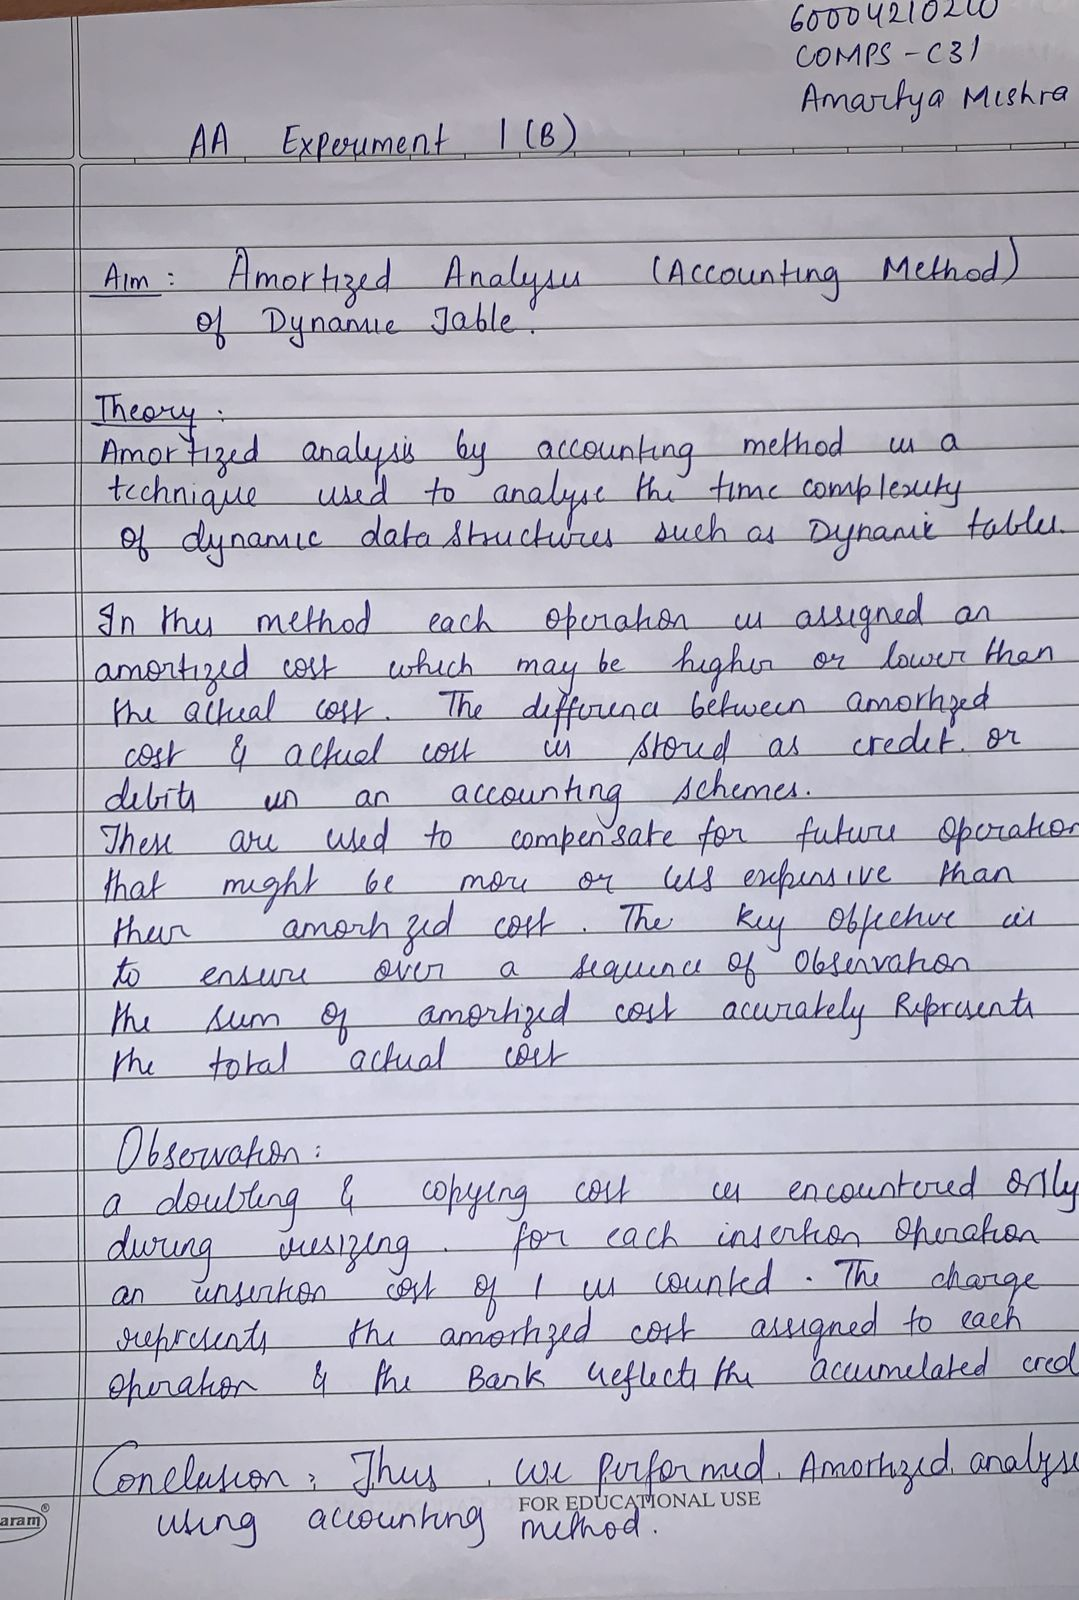 60004210210
COMPS - C31
Amartya Mishra
AA Experiment 1(B)
Aim : Amortized Analysis (Accounting Method)
of Dynamic Table.
Theory :
Amortized analysis by accounting method is a
technique used to analyse the time complexity
of dynamic data structures such as Dynamic tables.
In this method each operation is assigned an
amortized cost which may be higher or lower than
the actual cost. The difference between amortized
cost & actual cost is stored as credit or
debits in an accounting schemes.
These are used to compensate for future operation
that might be more or less expensive than
their amortized cost. The key objective is
to ensure over a sequence of observation
the sum of amortized cost acurately Represents
the total actual cost
Observation :
a doubling & copying cost is encountered only
during resizing. for each insertion operation
an insertion cost of 1 is counted. The charge
represents the amortized cost assigned to each
operation & the Bank reflects the accumelated cred
Conclusion : Thus, we performed Amortized analyse
FOR EDUCATIONAL USE
aram®
using accounting method.